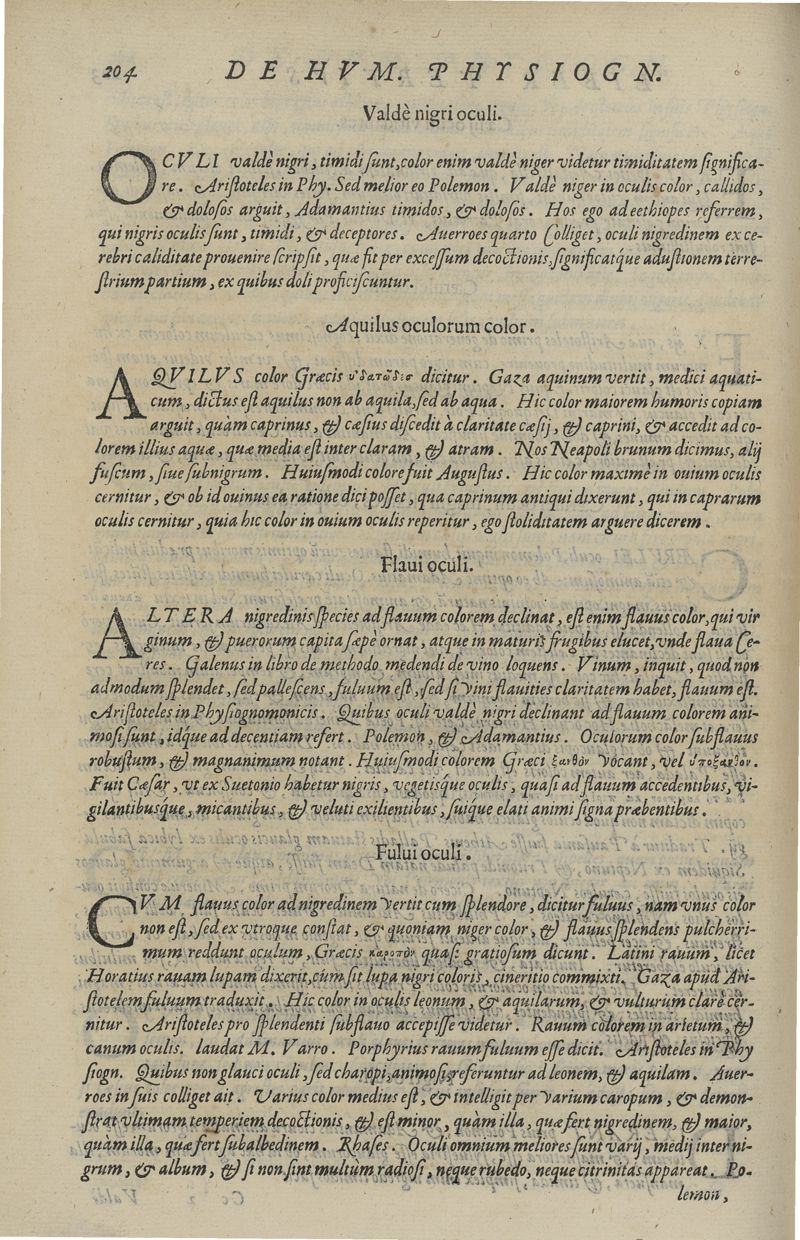 204. DE HVM. PHYSIOGN.
Valdè nigri oculi.
OCVLI valdè nigri, timidi ſunt, color enim valdè niger videtur timiditatem ſignifica-
re. Ariſtoteles in Phy. Sed melior eo Polemon. Valdè niger in oculis color, callidos,
& doloſos arguit, Adamantius timidos, & doloſos. Hos ego ad eethiopes referrem,
qui nigris oculis ſunt, timidi, & deceptores. Auerroes quarto Colliget, oculi nigredinem ex ce-
rebri caliditate prouenire ſcripſit, quæ fit per exceſſum decoctionis, ſignificatq́ue aduſtionem terre-
ſtrium partium, ex quibus doli proficiſcuntur.
Aquilus oculorum color.
AQVILVS color Græcis ὑδατώδης dicitur. Gaza aquinum vertit, medici aquati-
cum, dictus eſt aquilus non ab aquila, ſed ab aqua. Hic color maiorem humoris copiam
arguit, quàm caprinus, & cæſius diſcedit à claritate cæſij, & caprini, & accedit ad co-
lorem illius aquæ, quæ media eſt inter claram, & atram. Nos Neapoli brunum dicimus, alij
fuſcum, ſiue ſubnigrum. Huiuſmodi colore fuit Auguſtus. Hic color maximè in ouium oculis
cernitur, & ob id ouinus ea ratione dici poſſet, qua caprinum antiqui dixerunt, qui in caprarum
oculis cernitur, quia hic color in ouium oculis reperitur, ego ſtoliditatem arguere dicerem.
Flaui oculi.
ALTERA nigredinis ſpecies ad flauum colorem declinat, eſt enim flauus color, qui vir
ginum, & puerorum capita ſæpè ornat, atque in maturis frugibus elucet, vnde flaua Ce-
res. Galenus in libro de methodo medendi de vino loquens. Vinum, inquit, quod non
admodum ſplendet, ſed palleſcens, fuluum eſt, ſed ſi vini flauities claritatem habet, flauum eſt.
Ariſtoteles in Phyſiognomonicis. Quibus oculi valdè nigri declinant ad flauum colorem ani-
moſi ſunt, idque ad decentiam refert. Polemon, & Adamantius. Oculorum color ſubflauus
robuſtum, & magnanimum notant. Huiuſmodi colorem Græci ξανθὸν vocant, vel ὑποξανθὸν.
Fuit Cæſar, vt ex Suetonio habetur nigris, vegetisq́ue oculis, quaſi ad flauum accedentibus, vi-
gilantibusque, micantibus, & veluti exilientibus, ſuique elati animi ſigna præbentibus.
Fului oculi.
CVM flauus color ad nigredinem vertit cum ſplendore, dicitur fuluus, nam vnus color
non eſt, ſed ex vtroque conſtat, & quoniam niger color, & flauus ſplendens pulcherri-
mum reddunt oculum, Græcis καροπὸν quaſi gratioſum dicunt. Latini rauum, licet
Horatius rauam lupam dixerit, cùm ſit lupa nigri coloris, cineritio commixti. Gaza apud Ari-
ſtotelem fuluum traduxit. Hic color in oculis leonum, & aquilarum, & vulturum clarè cer-
nitur. Ariſtoteles pro ſplendenti ſubflauo accepiſſe videtur. Rauum colorem in arietum, &
canum oculis. laudat M. Varro. Porphyrius rauum fuluum eſſe dicit. Ariſtoteles in Phy
ſiogn. Quibus non glauci oculi, ſed charopi, animoſi, referuntur ad leonem, & aquilam. Auer-
roes in ſuis colliget ait. Varius color medius eſt, & intelligit per varium caropum, & demon-
ſtrat vltimam temperiem decoctionis, & eſt minor, quàm illa, quæ fert nigredinem, & maior,
quàm illa, quæ fert ſubalbedinem. Rhaſes. Oculi omnium meliores ſunt varij, medij inter ni-
grum, & album, & ſi non ſint multùm radioſi, neque rubedo, neque citrinitas appareat. Po-
lemon,